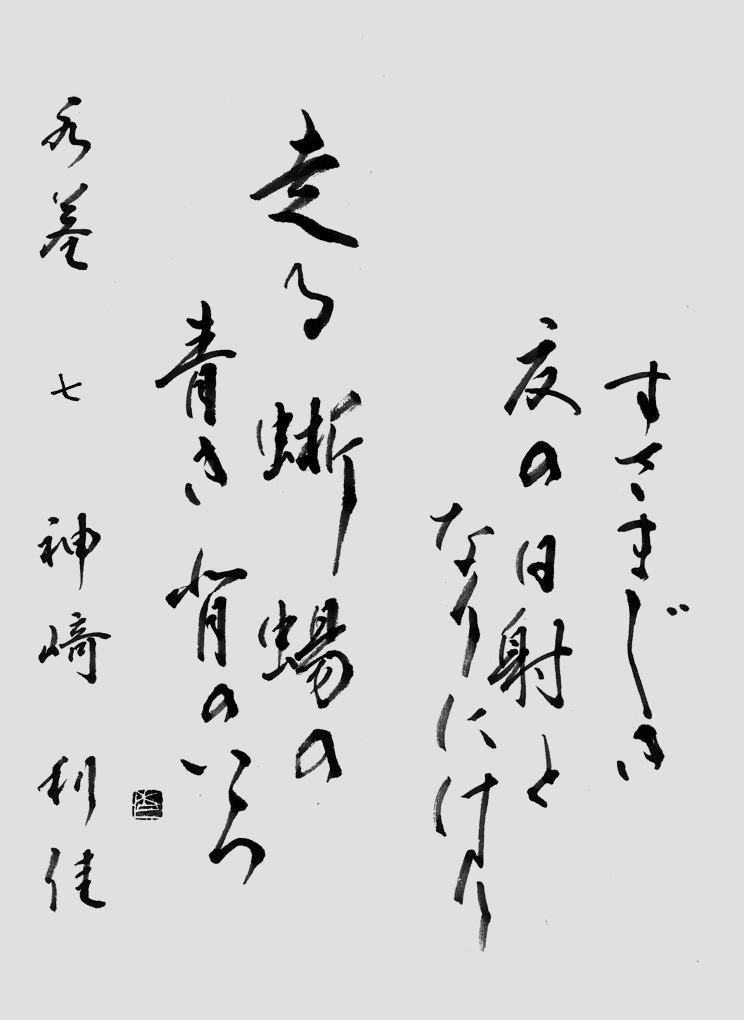 すさまじき
夏の日射と
なりにけり
走る蜥蜴の
青き背のいろ
七 神崎 利佳